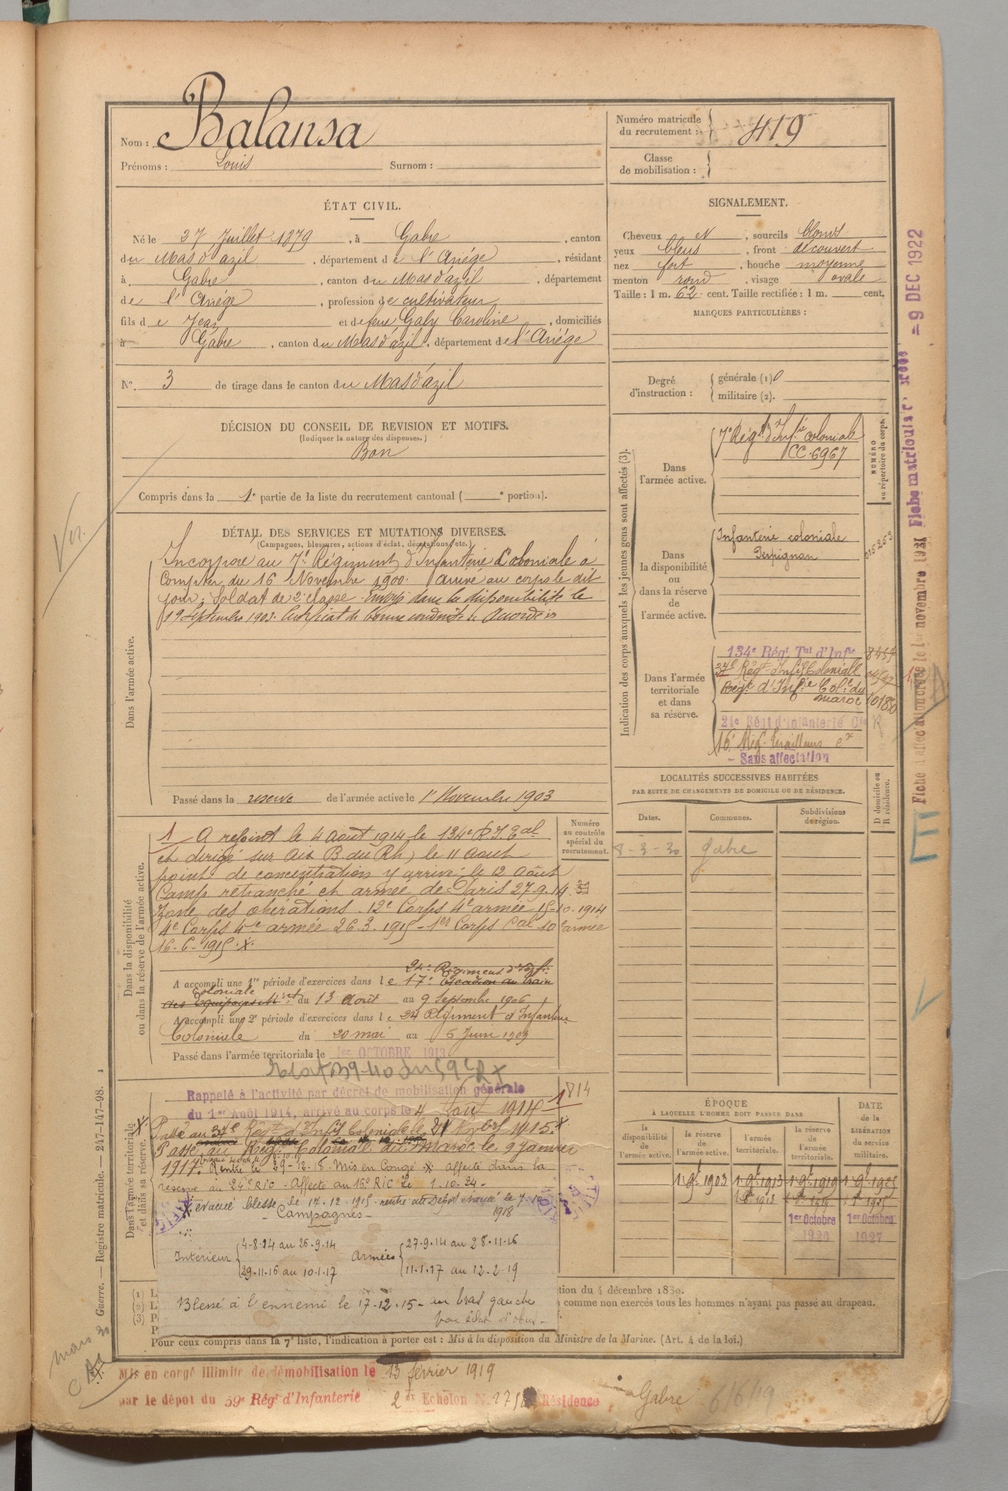 Nom : Balansa
Prénoms : Louis Surnom :
Numéro matricule du recrutement : 419
Classe de mobilisation :
ÉTAT CIVIL.
Né le 27 Juillet 1879, à Gabre, canton
du Mas d'azil, département de l'Ariége, résidant
à Gabre, canton du Mas d'azil, département
de l'Ariége, profession de cultivateur,
fils de Jean et de feue Galy Caroline, domiciliés
à Gabre, canton du Mas d'azil, département de l'Ariége
N° 3 de tirage dans le canton du Mas d'azil
DÉCISION DU CONSEIL DE REVISION ET MOTIFS.
(Indiquer la nature des dispenses.)
Bon
Compris dans la 1e partie de la liste du recrutement cantonal ( e portion).
DÉTAIL DES SERVICES ET MUTATIONS DIVERSES.
(Campagnes, blessures, actions d'éclat, décorations, etc.)
Dans l'armée active.
Incorporé au 7e Régiment d'Infanterie Coloniale à
Compter du 16 Novembre 1900. arrivé au corps le dit
jour, soldat de 2e classe. Envoyé dans la disponibilité le
19 Septembre 1903. Certificat de bonne conduite Accordé
Passé dans la reserve de l'armée active le 1er Novembre 1903
Dans la disponibilité ou dans la réserve de l'armée active.
A rejoint le 4 août 1914 le 134e R.I. Eal
et dirigé sur Aix B. du Rh) le 11 Aout
point de concentration y arrivé le 12 Août
Camp retranché et armée de Paris 27.9.14
Zone des opérations. 12e Corps 4e armée 15-10.1914
4e Corps 4e armée 26.3.1915 - 1er Corps Cal 10e armée
16.6.1915. X.
Numéro au contrôle spécial du recrutement.
24e Régiment d'Infie
A accompli une 1re période d'exercices dans le 17e Escadron du train
Coloniale
des Equipages Mres du 13 août au 9 Septembre 1906
A accompli une 2e période d'exercices dans le 24 Régiment d'Infanterie
Coloniale du 20 mai au 6 Juin 1909
Passé dans l'armée territoriale le 1er OCTOBRE 1913
Dans l'armée territoriale et dans sa réserve.
Rappelé à l'activité par décret de mobilisation générale
du 1er Août 1914, arrivé au corps le 4 Aout 1914
814
Passé au Rég. Coloniale du Maroc le 9 Janvier
1917. Rentré le 29-12-15. Mis en Congé X affecté dans la
reserve au 24e RIC - Affecté au 16e RIC le 1.10.24.
évacué blessé le 17-12-1915
1918
- Campagnes -
Intérieur { 4-8-14 au 26-9-14 Armées { 27-9-14 au 28-11-16
29-11-16 au 10-1-17 11-1-17 au 12-2-19
Blessé à l'ennemi le 17-12-15 - au bras gauche
par éclat d'obus -
tion du 4 décembre 1830.
comme non exercés tous les hommes n'ayant pas passé au drapeau.
Pour ceux compris dans la 7e liste, l'indication à porter est : Mis à la disposition du Ministre de la Marine. (Art. 4 de la loi.)
Mis en congé illimité de démobilisation le 13 février 1919
par le dépot du 59e Rég' d'Infanterie 2e Echelon N. Résidence
Gabre 6/6/19
SIGNALEMENT.
Cheveux , sourcils blonds
yeux bleus, front découvert
nez fort, bouche moyenne
menton rond, visage ovale
Taille : 1 m. 62 cent. Taille rectifiée : 1 m. cent.
MARQUES PARTICULIÈRES :
Degré d'instruction : { générale (1) 0
militaire (2).
Indication des corps auxquels les jeunes gens sont affectés (3).
NUMÉRO au répertoire du corps.
Dans l'armée active.
7e Régt d'Infie coloniale
CC 6967
Dans la disponibilité ou dans la réserve de l'armée active.
Infanterie coloniale
Perpignan
Dans l'armée territoriale et dans sa réserve.
134e Régt Tal d'Infie
Régt d'Infie Coloniale
Régt d'Infie Cole du
maroc
10180
24e Régt d'Infanterie Cle
16e Rég. Tirailleurs
- Sans affectation
LOCALITÉS SUCCESSIVES HABITÉES
PAR SUITE DE CHANGEMENTS DE DOMICILE OU DE RÉSIDENCE.
Dates. Communes. Subdivisions de région. D domicile ou R résidence.
8-3-30 Gabre
ÉPOQUE
À LAQUELLE L'HOMME DOIT PASSER DANS
DATE de la LIBÉRATION du service militaire.
la disponibilité de l'armée active. la réserve de l'armée active. l'armée territoriale. la réserve de l'armée territoriale.
1 9bre 1903 1 9bre 1913 1 9bre 1919 1 9bre 1925
1er Octobre 1926 1er Octobre 1927
Guerre. — Registre matricule. — 247-147-98.
= 9 DEC 1922